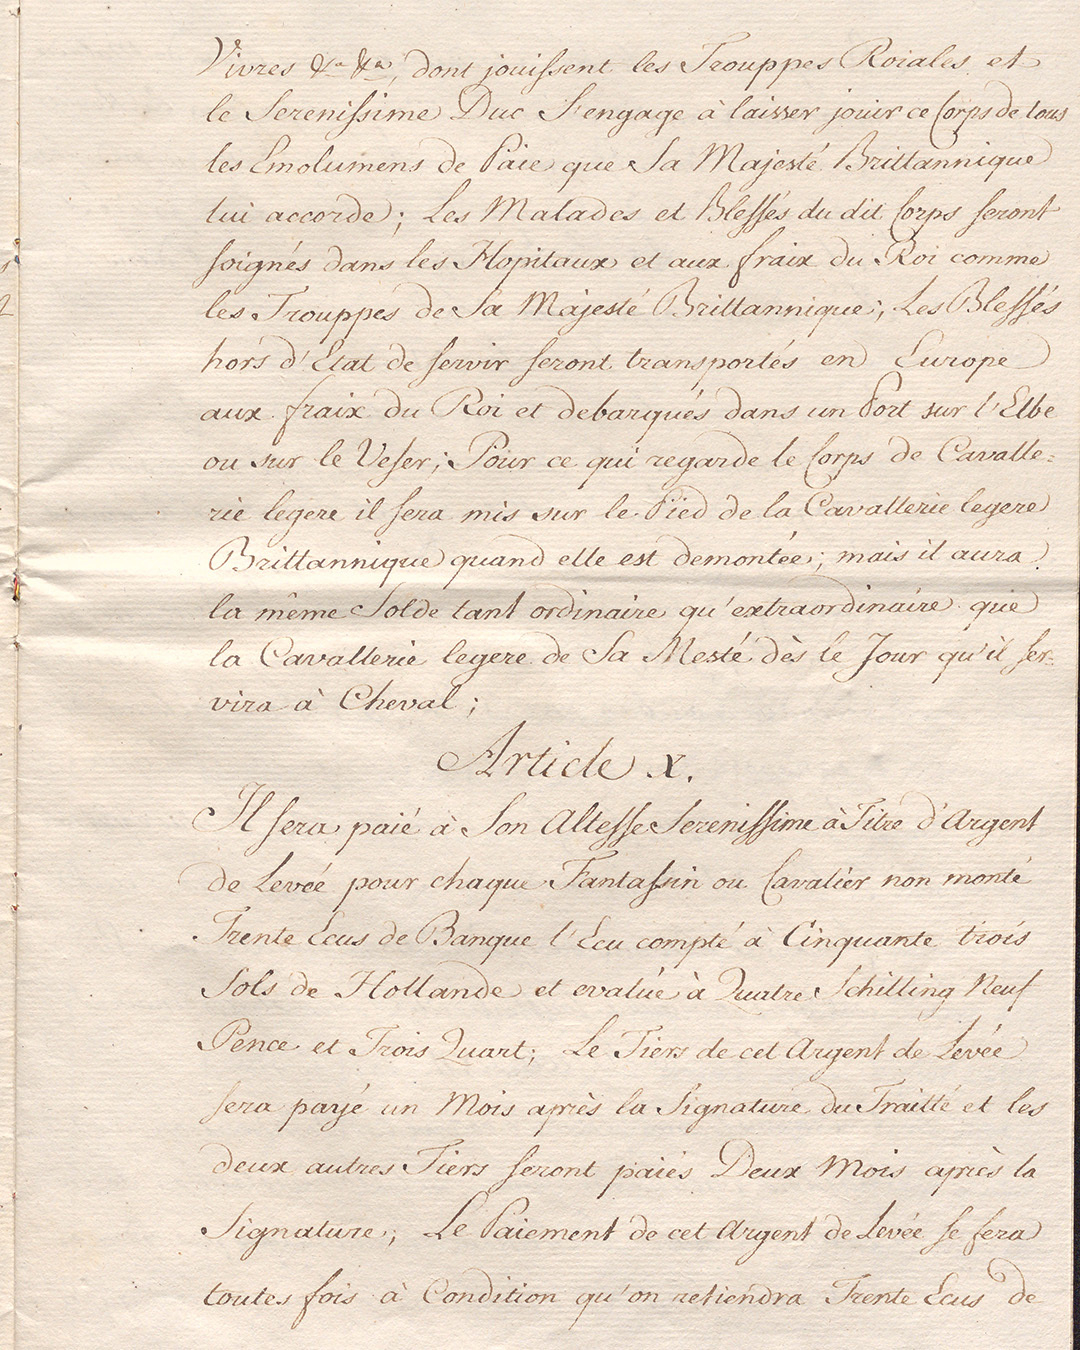 Vivres &a &a, dont jouissent les Trouppes Roiales et
le Serenissime Duc S'engage à laisser jouir ce Corps de tous
les Emolumens de Paie que Sa Majesté Brittannique
lui accorde; Les Malades et Blessés du dit Corps seront
soignés dans les Hopitaux et aux fraix du Roi comme
les Trouppes de Sa Majesté Brittannique; Les Blessés
hors d'Etat de servir seront transportés en Europe
aux fraix du Roi et debarqués dans un Port sur l'Elbe
ou sur le Veser; Pour ce qui regarde le Corps de Cavalle=
rie legere il sera mis sur le Pied de la Cavallerie legere
Brittannique quand elle est demontée; mais il aura
la même Solde tant ordinaire qu'extraordinaire que
la Cavallerie legere de Sa Mesté dès le Jour qu'il ser=
vira à Cheval;
Article X.
Il sera paié à Son Altesse Serenissime à Titre d'Argent
de Levéé pour chaque Fantassin ou Cavalier non monté
Trente Ecus de Banque l'Ecu compté à Cinquante trois
Sols de Hollande et evalué à Quatre Schilling Neuf
Pence et Trois Quart; Le Tiers de cet Argent de Levée
sera payé un Mois après la Signature du Traitté et les
deux autres Tiers seront paiés Deux Mois après la
Signature; Le Paiement de cet Argent de Levée se fera
toutes fois à Condition qu'on retiendra Trente Ecus de